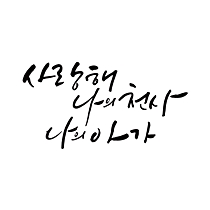 사랑해
나의 천사
나의 아가